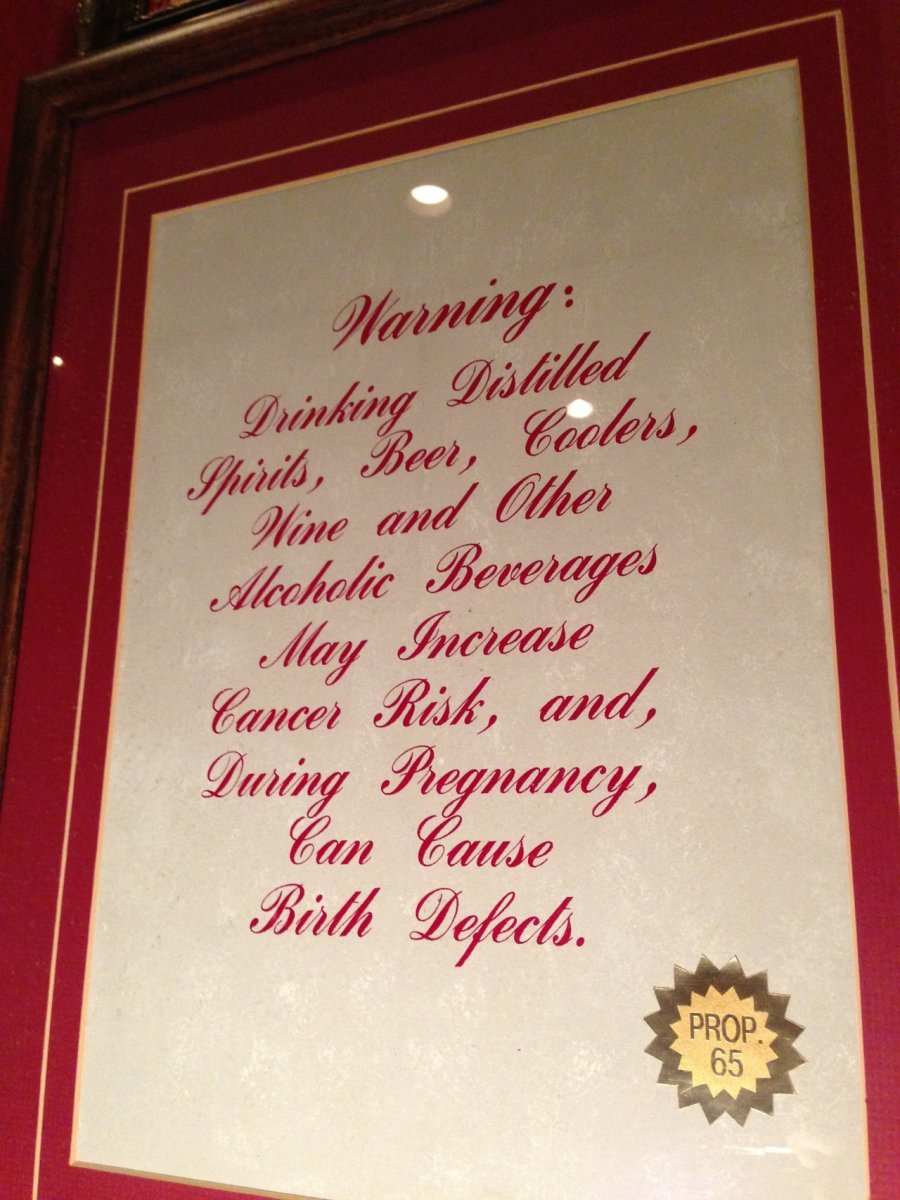 Warning:
Drinking Distilled
Spirits, Beer, Coolers,
Wine and Other
Alcoholic Beverages
May Increase
Cancer Risk, and,
During Pregnancy,
Can Cause
Birth Defects.
PROP.
65